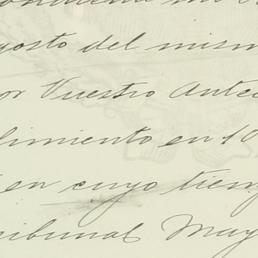 gosto del mism
or Vuestro Ante
limiento en 10
en cuyo tiem
ribunal May